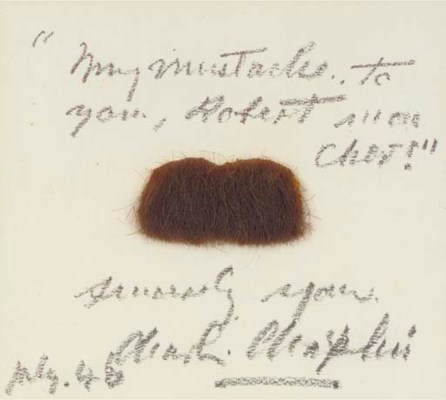 "My mustache.. to
you, Robert mon
Cher!"
Sincerely yours.
Charlie Chaplin